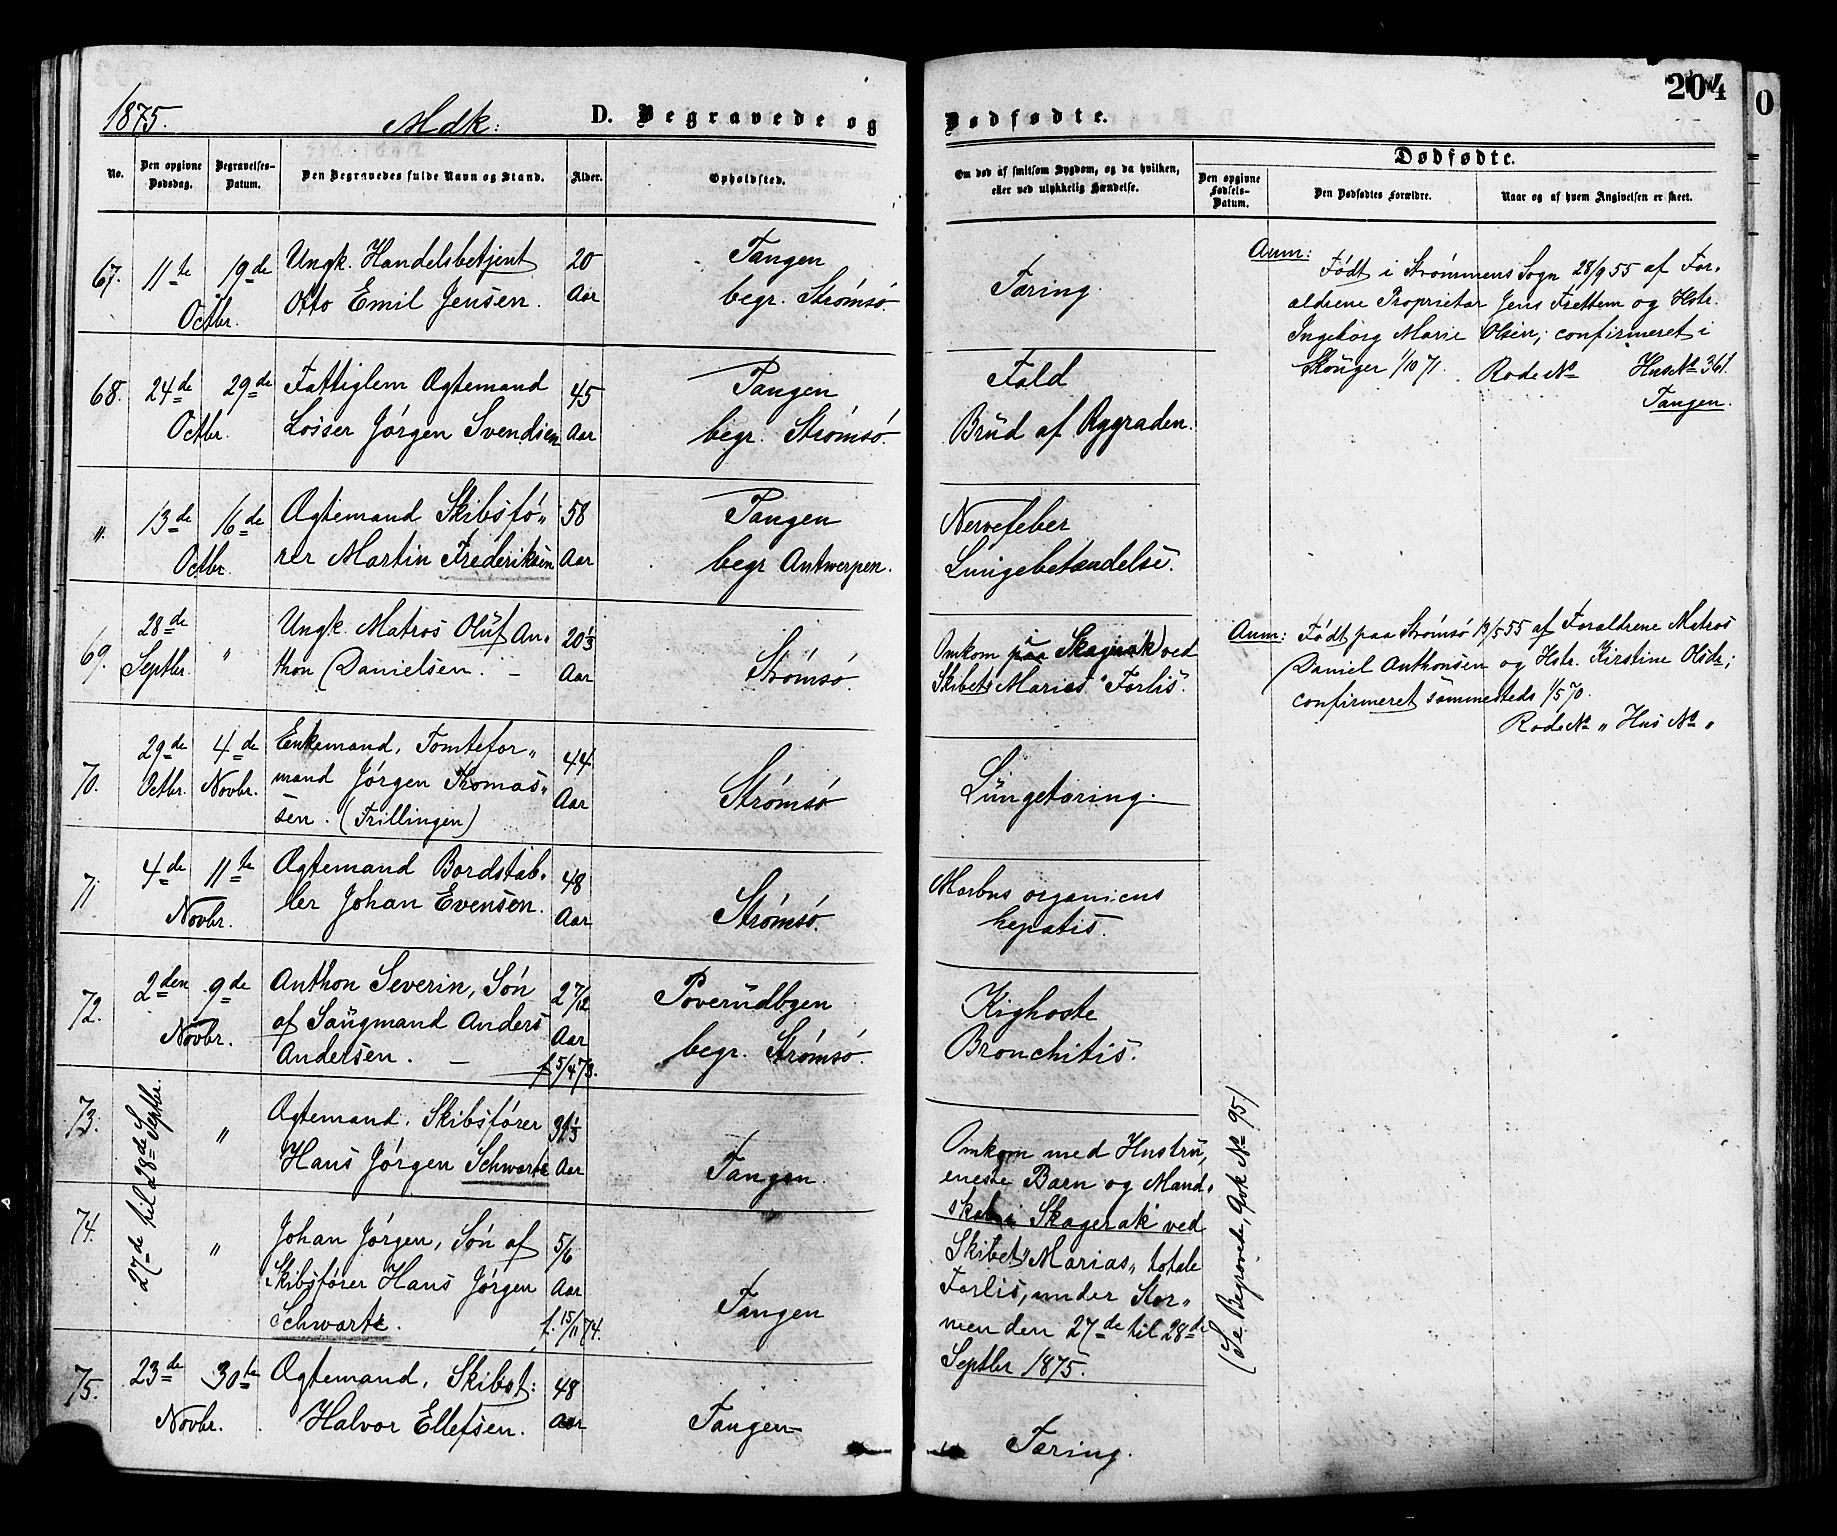 204
0
1875. Mdk: D. Begravede og Dødfødte.
No.
Den opgivne Dødsdag.
Begravelses-Datum.
Den Begravedes fulde Navn og Stand.
Alder.
Opholdsted.
Om død af smitsom Sygdom, og da hvilken,
eller ved ulykkelig Hændelse.
Dødfødte.
Den opgivne Fødsels-Datum.
Den Dødfødtes Forældre.
Naar og af hvem Angivelsen er skeet.
67. 11te 19de Octbr.
Ungk. Handelsbetjent
Otto Emil Jensen.
20 Aar
Tangen
begr. Strømsø.
Tæring.
Anm: Født i Strømmens Sogn 28/9 55 af For-
ældrene Proprietær Jens Frettem og Hstr.
Ingeborg Marie Olsen; confirmeret i
Skouger 1/10 71. Rode No Hus No 361.
Tangen.
68. 24de 29de Octbr.
Fattiglem Ægtemand
Losser Jørgen Svendsen
45 Aar
Tangen
begr. Strømsø.
Fald
Brud af Rygraden.
". 13de 16de Octbr.
Ægtemand Skibsfø„
rer Martin Frederiksen
58 Aar
Tangen
begr Antwerpen.
Nervefeber
Lungebetændelse.
69. 28de Septbr. "
Ungk. Matros Oluf An„
thon (Danielsen. –
20 1/3 Aar
Strømsø.
Omkom paa Skagerak) ved
Skibet "Marias" Forlis.
Anm: Født paa Strømsø 19/5 55 af Forældrene Matros
Daniel Anthonsen og Hstr. Kirstine Olsdr;
confirmeret sammesteds 1/5 70.
Rode No " Hus No "
70. 29de Octbr. 4de Novbr.
Enkemand, Tomtefor„
mand Jørgen Thomas„
sen. (Trillingen)
44 Aar
Strømsø
Lungetæring.
71 4de 11te Novbr.
Ægtemand Bordstab„
ler Johan Evensen.
48 Aar
Strømsø.
Morbus organicus
hepatis.
72. 2den 9de Novbr.
Anthon Severin, Søn
af Saugmand Anders
Andersen. –
2 7/12 Aar
f. 5/4 73.
Poverudbyen
begr. Strømsø.
Kighoste
Bronchitis.
73. 27de til 28de Septbr. "
Ægtemand, Skibsfører
Hans Jørgen Schwartz
31 1/3 Aar
Tangen.
Omkom med Hustru,
eneste Barn og Mand„
skab i Skagerak ved
Skibet "Marias" totale
Forlis, under Stor„
men den 27de til 28de
Septbr 1875.
(Se Begravede, Qvk No 95)
74. "
Johan Jørgen, Søn af
Skibsfører Hans Jørgen
Schwartz.
5/6 Aar
f. 15/11 74.
Tangen
75. 23de 30te Novbr.
Ægtemand, Skibst:
Halvor Ellefsen.
48 Aar
Tangen
Tæring.